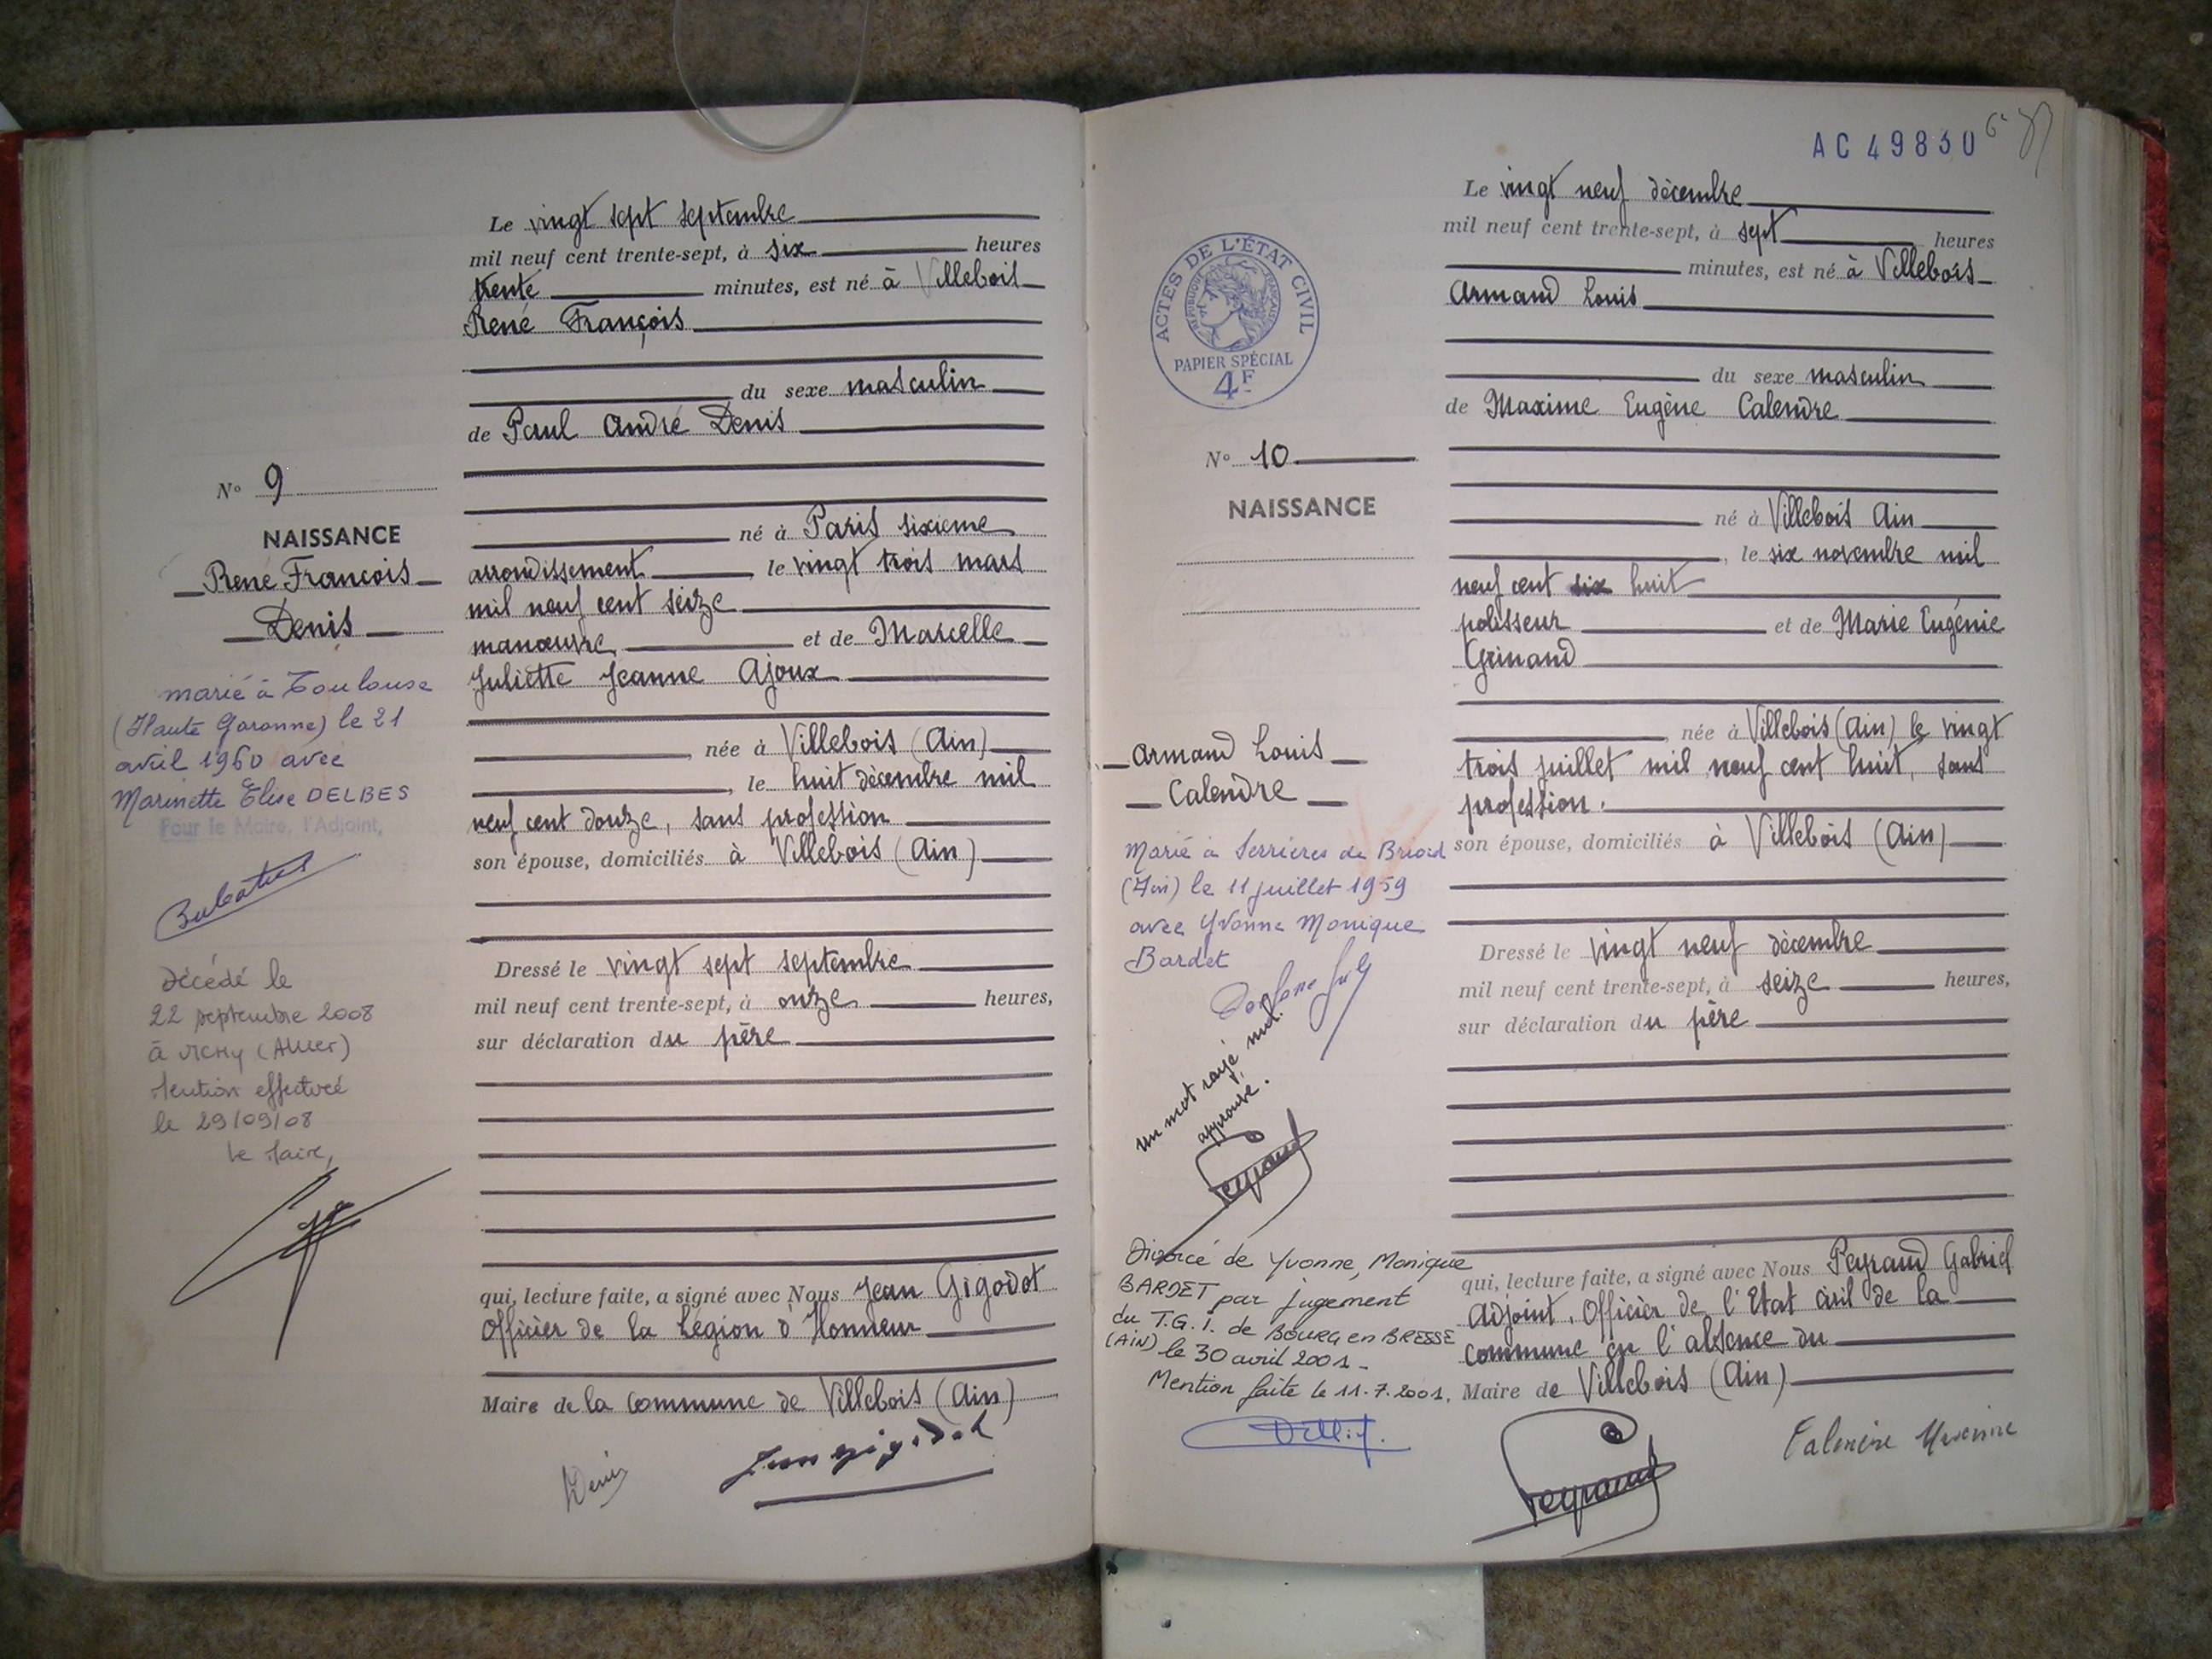 Le vingt sept septembre
mil neuf cent trente-sept, à six heures
trente minutes, est né à Villebois
René François
du sexe masculin
de Paul André Denis
né à Paris sixieme
arrondissement le vingt trois mars
mil neuf cent seize
manœuvre et de Marcelle
Juliette Jeanne Ajoux
née à Villebois (Ain)
, le huit décembre mil
neuf cent douze, sans profession
son épouse, domiciliés à Villebois (Ain)
Dressé le vingt sept septembre
mil neuf cent trente-sept, à onze heures,
sur déclaration du père
qui, lecture faite, a signé avec Nous Jean Gigodot
Officier de la Légion d'Honneur
Maire de la commune de Villebois (Ain)
Denis
Jean Gigodot
N° 9
NAISSANCE
René François
Denis
marié à Toulouse
(Haute Garonne) le 21
avril 1960 avec
Marinette Elise DELBES
Pour le Maire, l'Adjoint,
Décédé le
22 septembre 2008
à VICHY (Allier)
Mention effectuée
le 29/09/08
Le Maire,
AC 49830
Le vingt neuf décembre
mil neuf cent trente-sept, à sept heures
minutes, est né à Villebois
Armand Louis
du sexe masculin
de Maxime Eugène Calendre
né à Villebois Ain
, le six novembre mil
neuf cent six huit
polisseur et de Marie Eugénie
Grinand
, née à Villebois (Ain) le vingt
trois juillet mil neuf cent huit, sans
profession.
son épouse, domiciliés à Villebois (Ain)
Dressé le vingt neuf décembre
mil neuf cent trente-sept, à seize heures,
sur déclaration du père
qui, lecture faite, a signé avec Nous Peyraud Gabriel
Adjoint, Officier de l'Etat civil de la
commune en l'absence du
Maire de Villebois (Ain)
Peyraud
Calendre Maxime
ACTES DE L'ÉTAT CIVIL
RÉPUBLIQUE FRANÇAISE
PAPIER SPÉCIAL
4F
N° 10
NAISSANCE
Armand Louis
Calendre
Marié à Serrières de Briord
(Ain) le 11 juillet 1959
avec Yvonne Monique
Bardet
Un mot rayé nul.
approuvé.
Peyraud
Divorcé de Yvonne, Monique
BARDET par jugement
du T.G.I. de BOURG en BRESSE
(AIN) le 30 avril 2001 -
Mention faite le 11.7.2001.